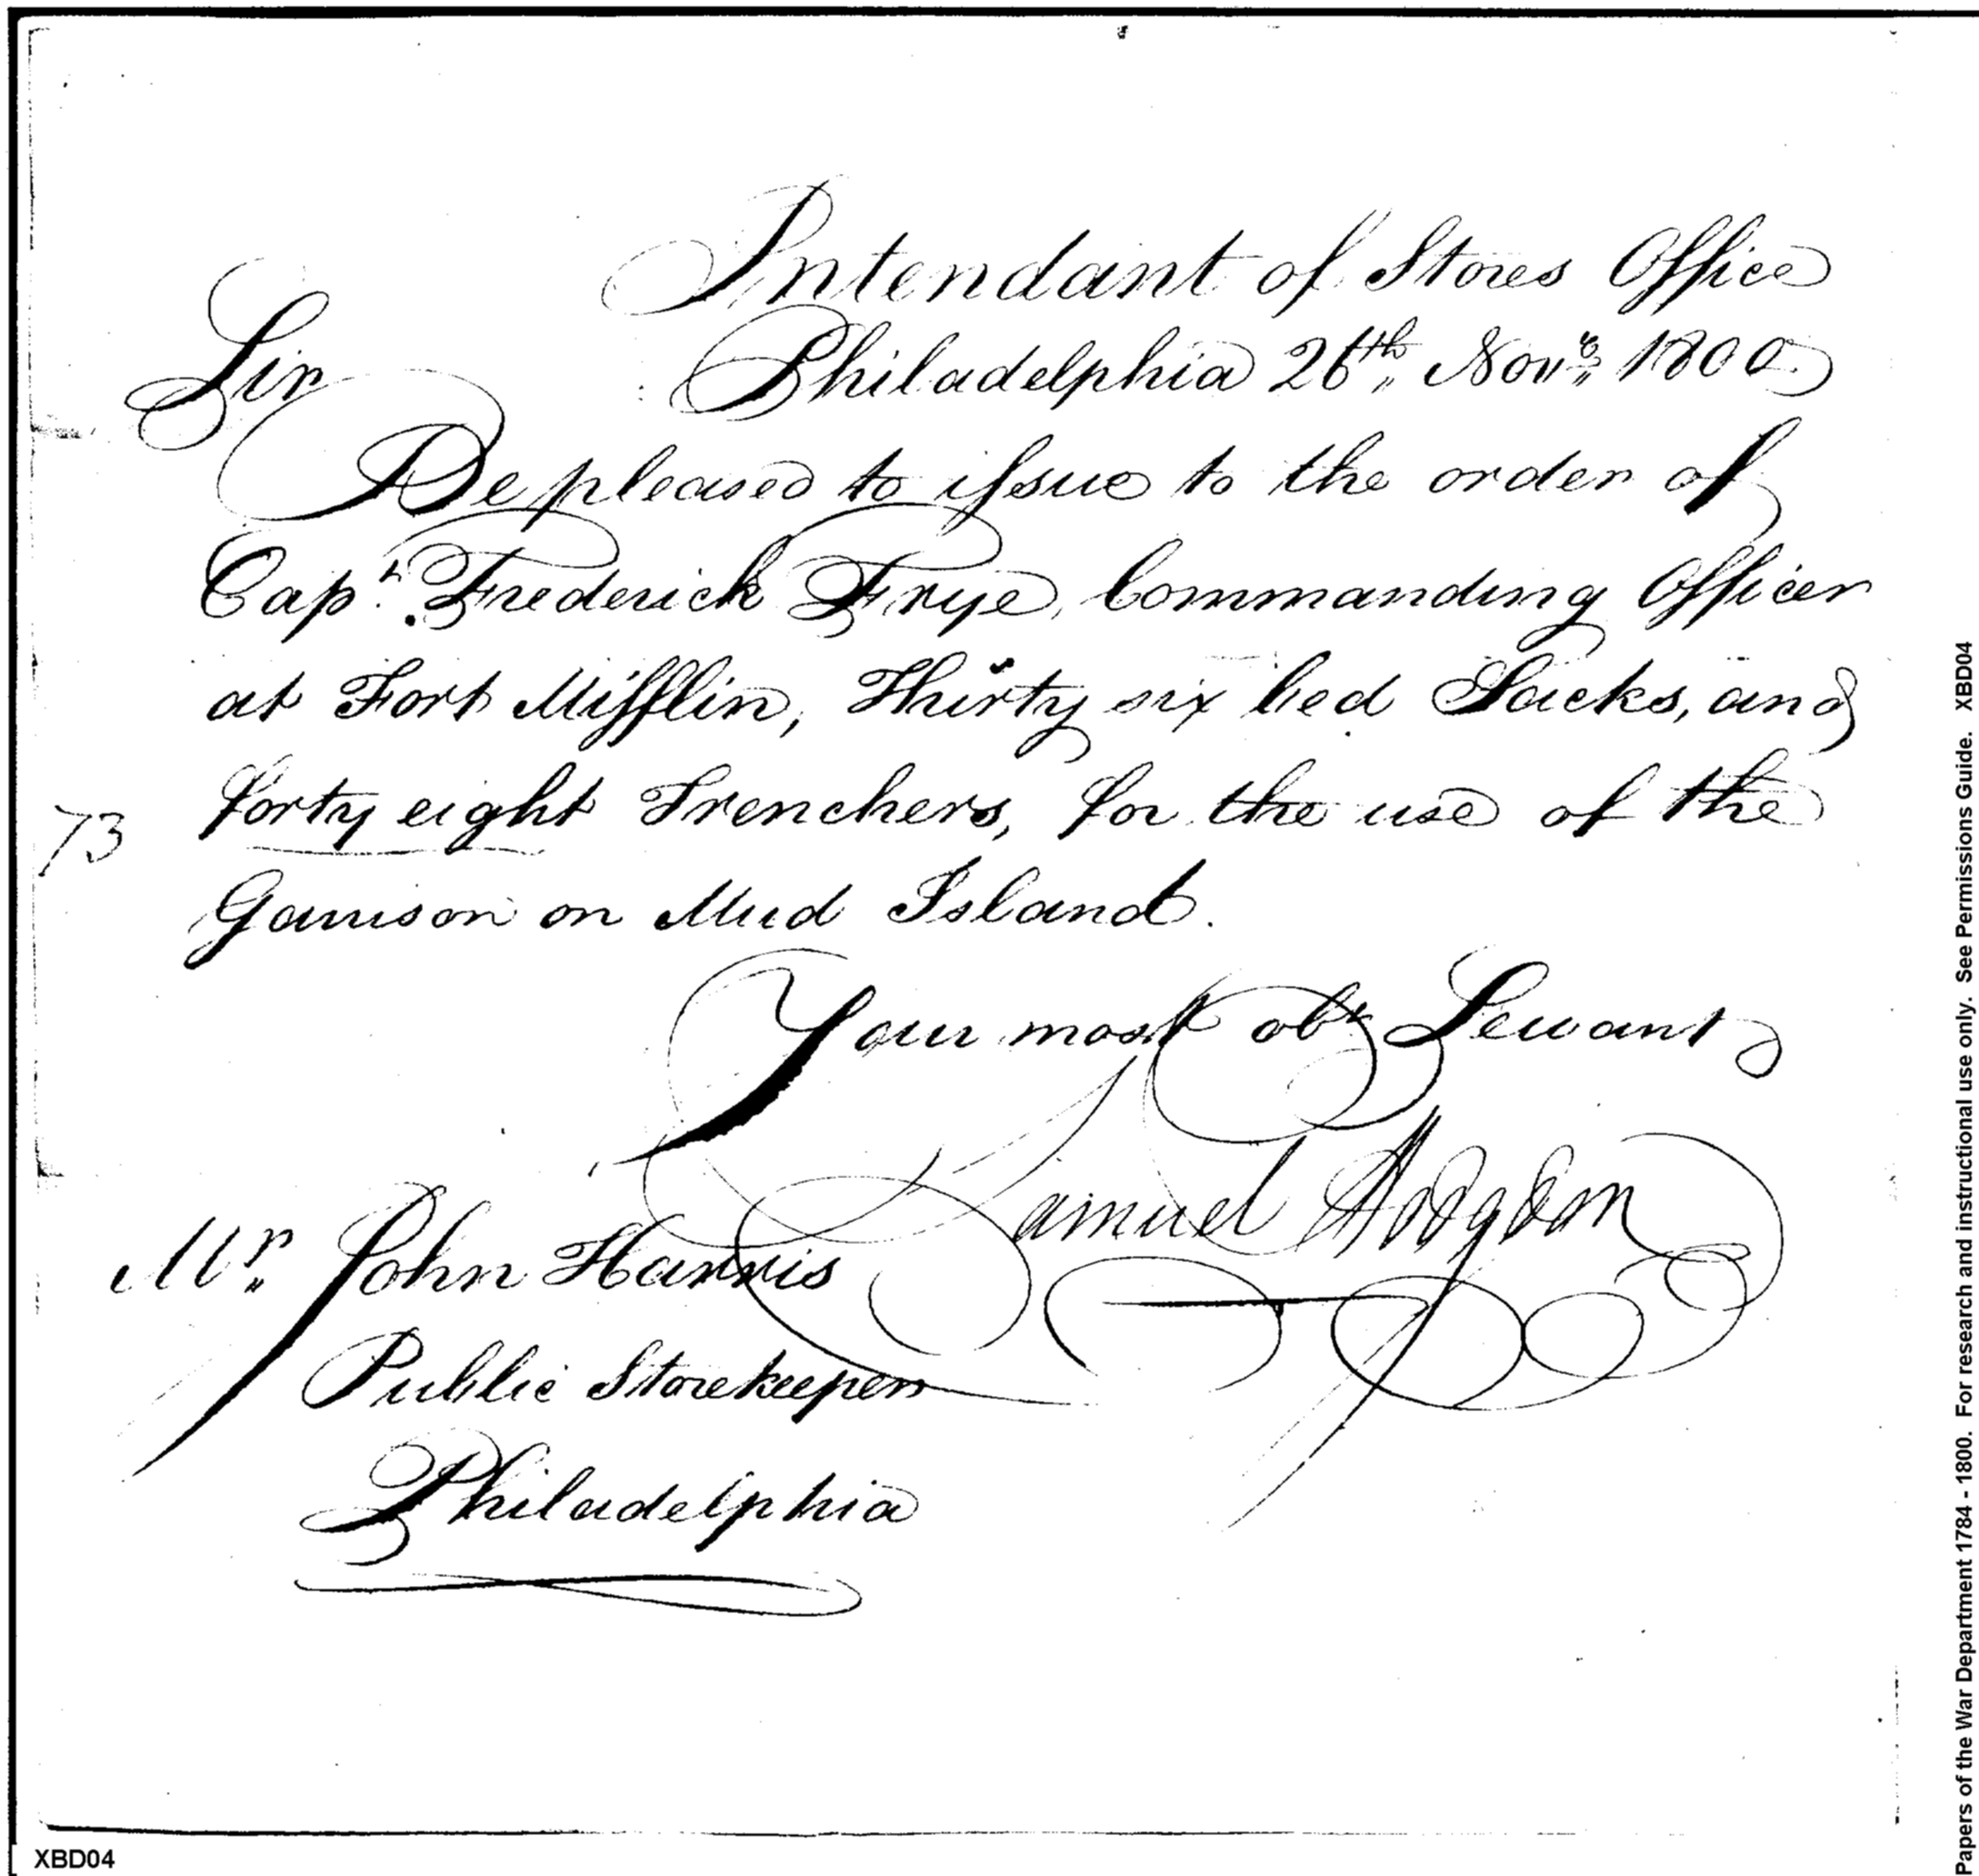 Intendant of Stores Office
Philadelphia 26th Novr 1800
Sir
Be pleased to issue to the order of
Capt. Frederick Frye, Commanding Officer
at Fort Mifflin, Thirty six bed Sacks, and
forty eight Trenchers, for the use of the
73
Garrison on Mud Island.
Your most obt Servant
Samuel Hodgdon
Mr. John Harris
Public Storekeeper
Philadelphia
XBD04
Papers of the War Department 1784 - 1800. For research and instructional use only. See Permissions Guide. XBD04